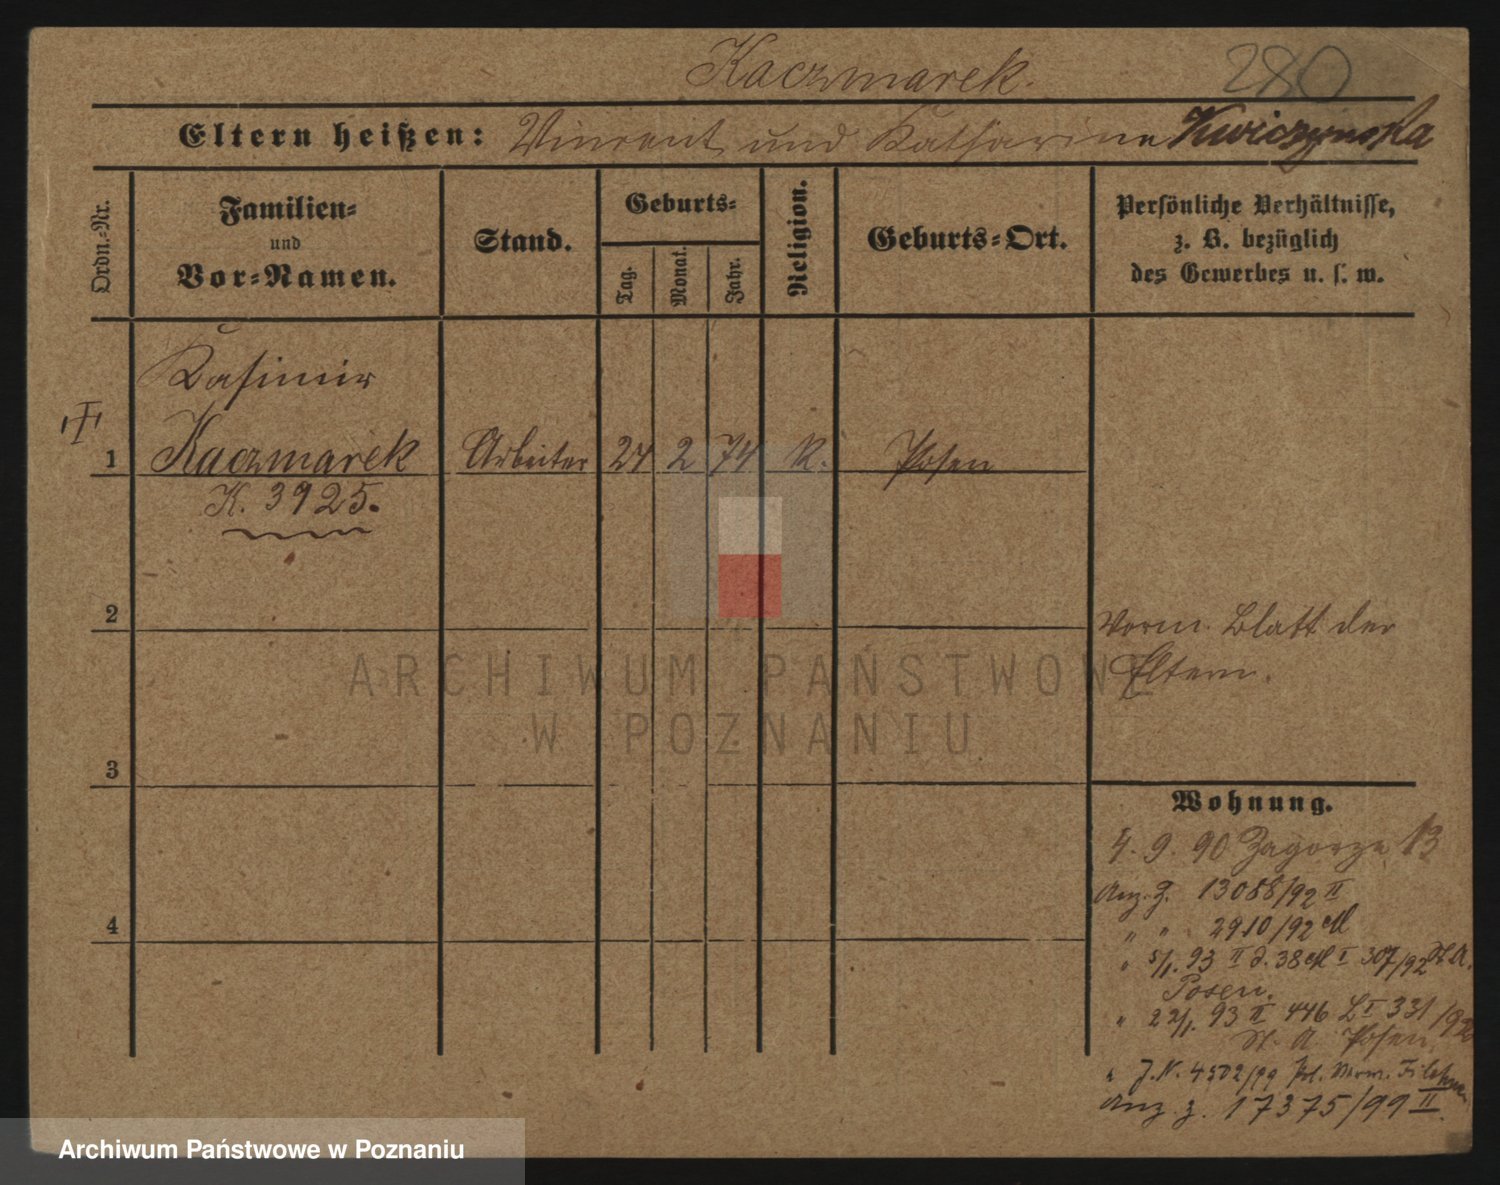 Kaczmarek.
280
Eltern heißen: Vincent und Katharine Kwiczynska
Ordn.-Nr.
Familien-
und
Vor-Namen.
Stand.
Geburts-
Tag.
Monat.
Jahr.
Religion.
Geburts-Ort.
Persönliche Verhältnisse,
z. B. bezüglich
des Gewerbes u. s. w.
Kasimir
1 Kaczmarek Arbeiter 24 2 74 K. Posen
K. 3925.
2
Vorm. Blatt der
Eltern.
3
4
Wohnung.
4. 9. 90 Zagorze 13
Anz. z. 13088/92 II
" " 2910/92
" 5/1. 93 II J. 38 I 307/92 St. A.
Posen.
" 22/1. 93 II 446 L I 331/92
St. A. Posen.
" J.N. 4502/99
Anz. z. 17375/99 II.
ARCHIWUM PAŃSTWOWE
W POZNANIU
Archiwum Państwowe w Poznaniu